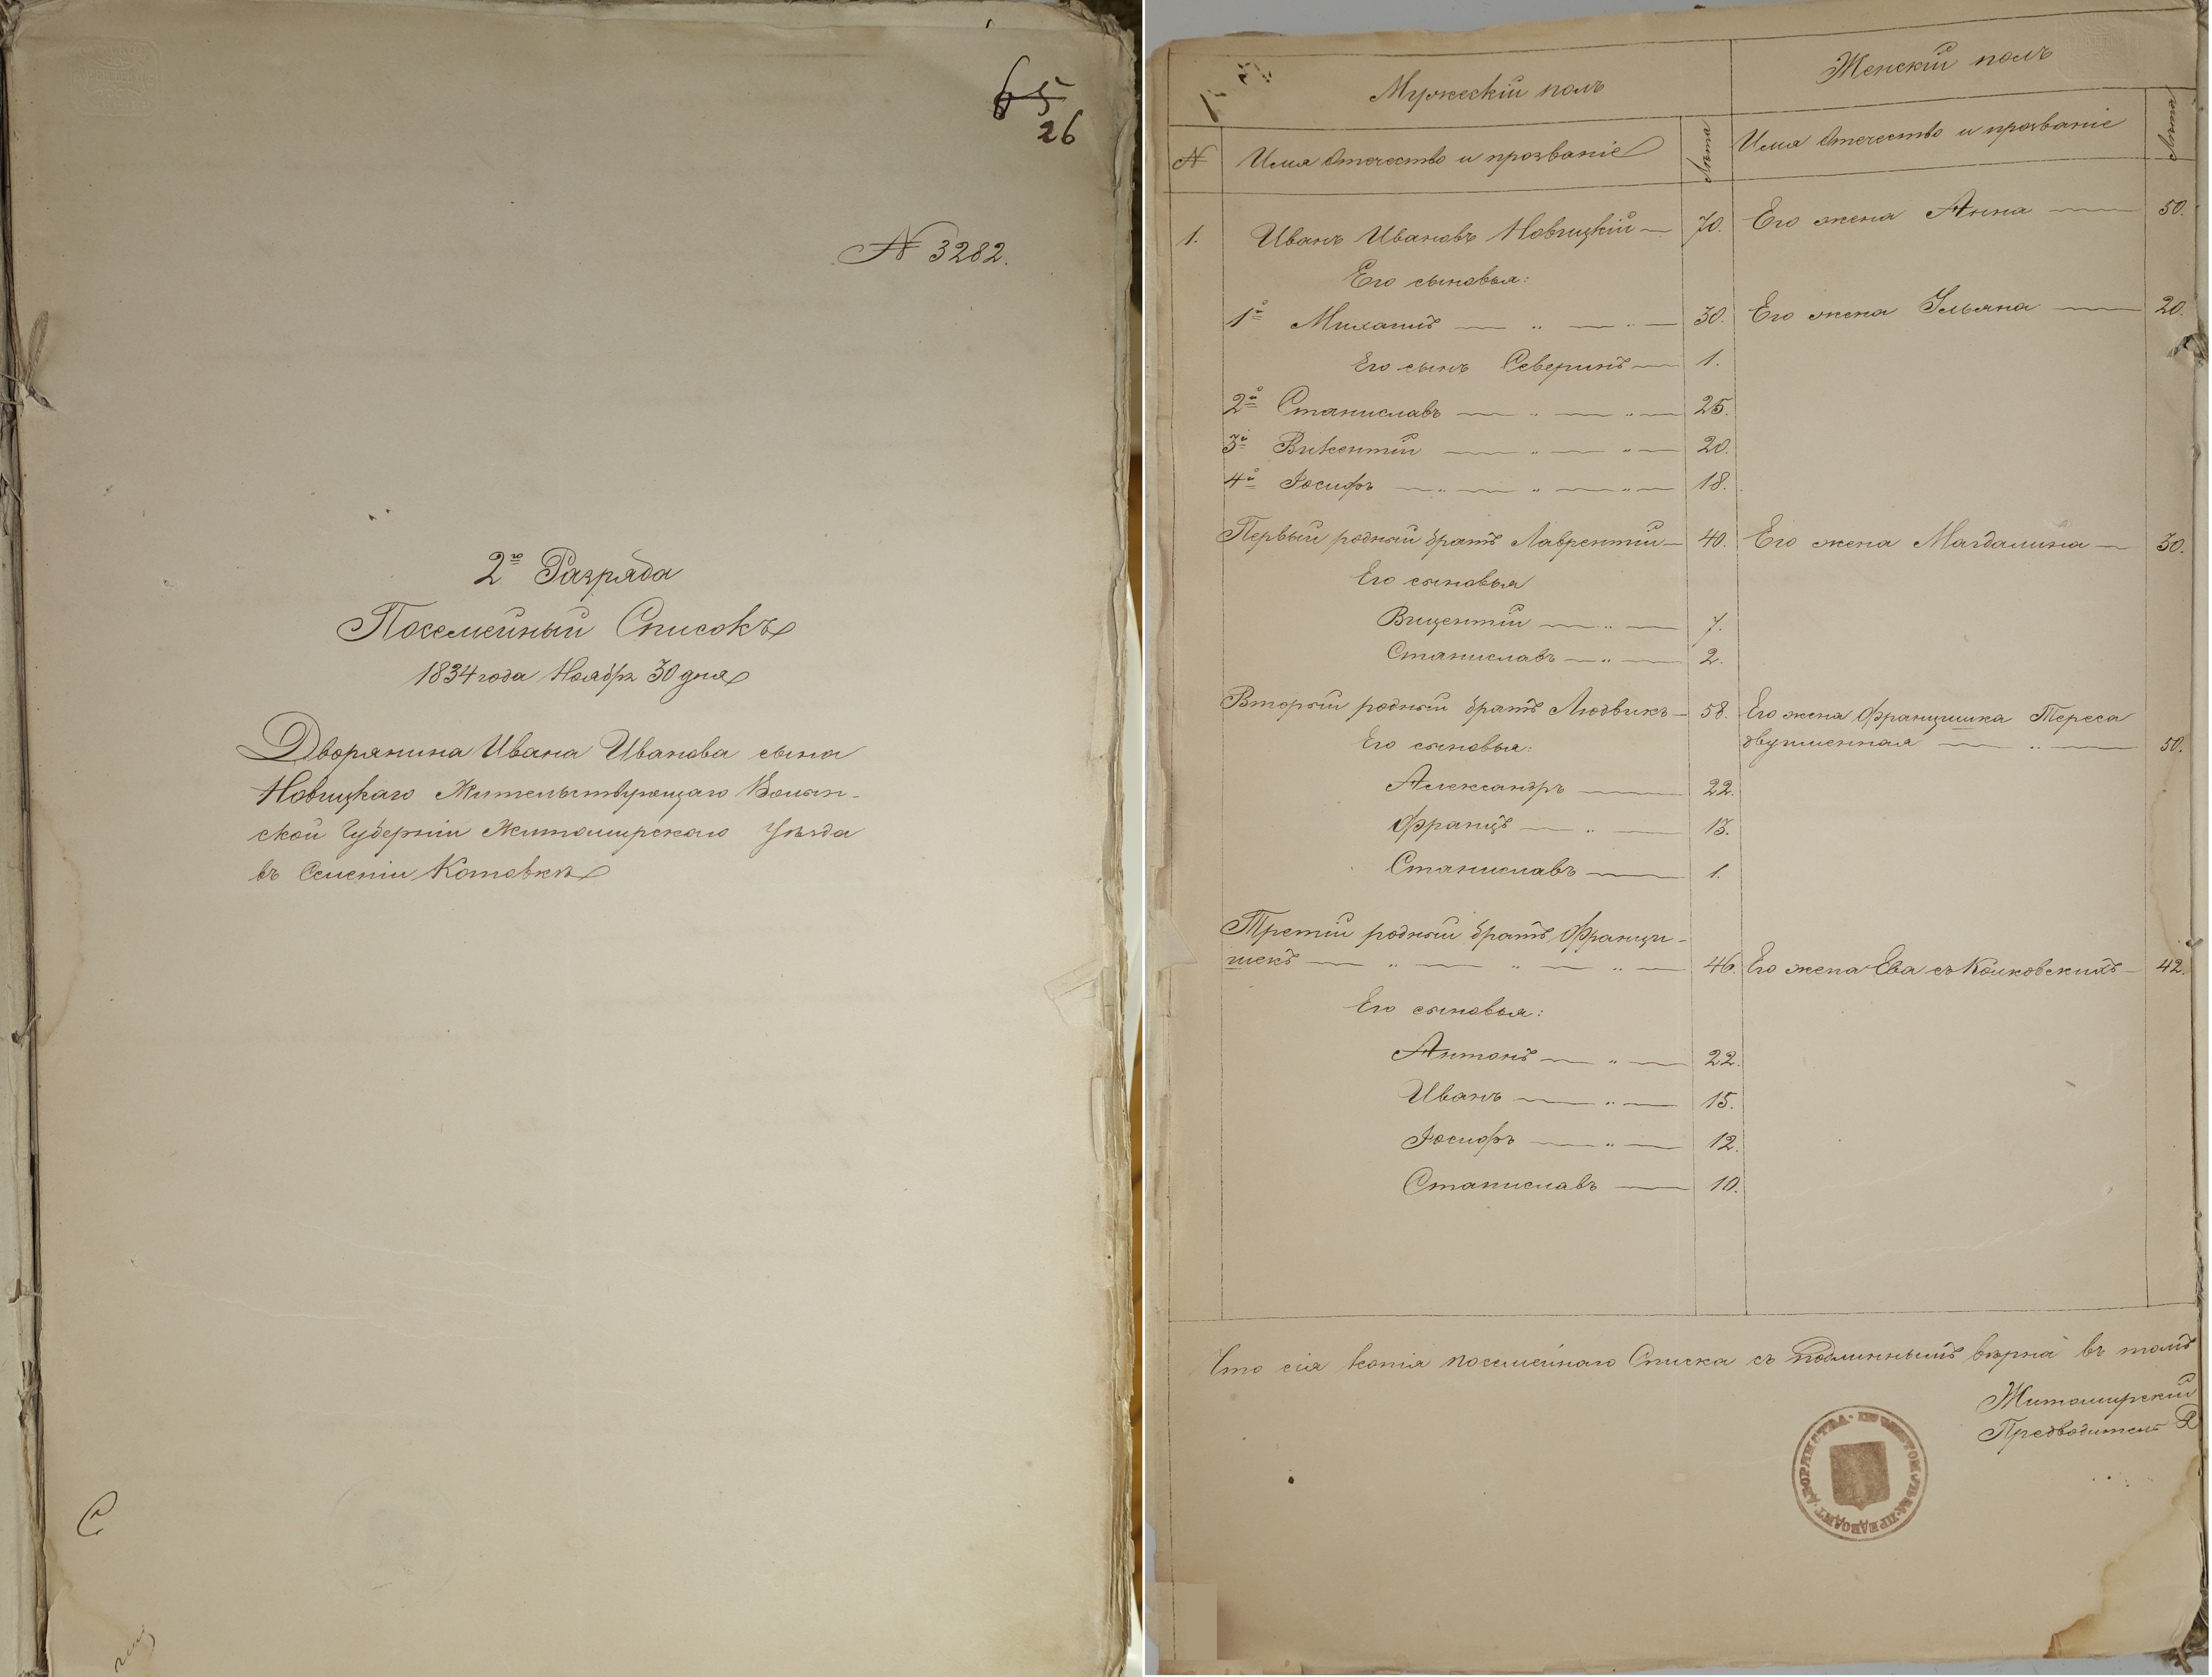 65
26
N 3282.
2го Разряда
Посемейный Списокъ
1834 года Ноябр. 30 дня
Дворянина Ивана Иванова сына
Новицкаго Жительствующаго Волын-
ской Губерніи Житомирскаго Уѣзда
въ Селеніи Котовкѣ
Мужескій полъ
Женскій полъ
N Имя Отечество и прозваніе Лѣта Имя Отечество и прозваніе Лѣта
1. Иванъ Ивановъ Новицкій — 70. Его жена Анна — 50.
Его сыновья:
1й Михаилъ — „ — „ — 30. Его жена Ульяна — 20.
Его сынъ Северинъ — 1.
2й Станиславъ — „ — „ — 25.
3й Викентій — „ — „ — 20.
4й Іосифъ — „ — „ — „ — 18.
Первый родный братъ Лаврентій — 40. Его жена Магдалина — 30.
Его сыновья
Вицентій — „ — 7.
Станиславъ — „ — 2.
Вторый родный братъ Людвикъ — 58. Его жена Францишка Тереса
двуименная — „ — 50.
Его сыновья:
Александръ — 22.
Францъ — „ — 13.
Станиславъ — 1.
Третій родный братъ Франци-
шекъ — „ — „ — „ — 46. Его жена Ева съ Колковскихъ — 42.
Его сыновья:
Антонъ — „ — 22.
Иванъ — „ — 15.
Іосифъ — „ — 12.
Станиславъ — 10.
Что сія копія посемейнаго Списка съ подлиннымъ вѣрна въ томъ
Житомирскій
Предводитель